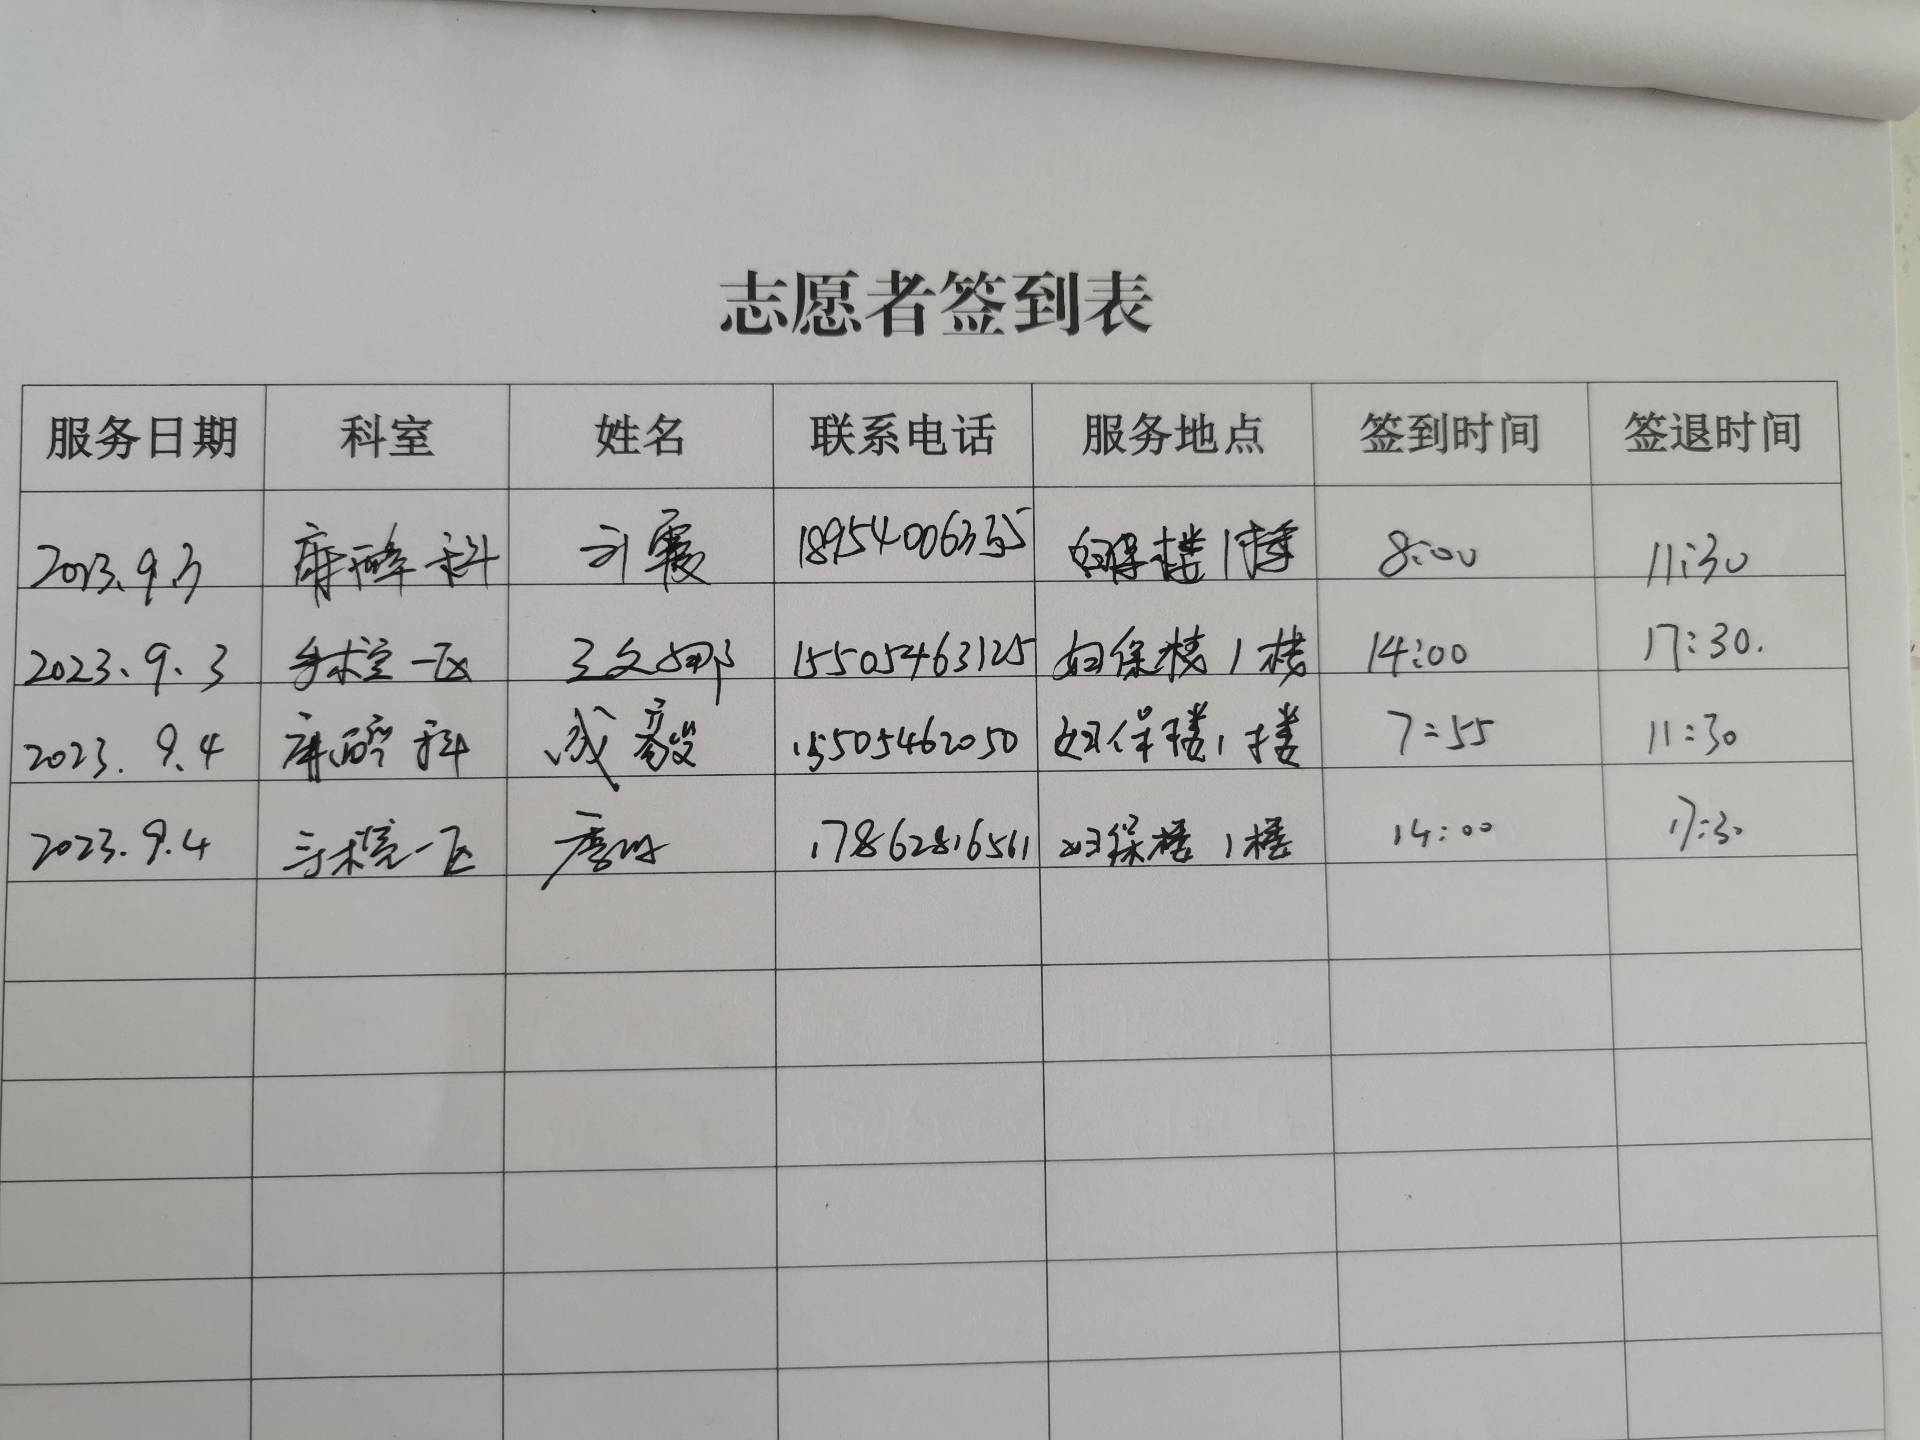 志愿者签到表
服务日期 科室 姓名 联系电话 服务地点 签到时间 签退时间
2023.9.3 麻醉科 刘霞 妇保楼1楼 8:00 11:30
2023.9.3 手术室一区 王文娜 15505463125 妇保楼1楼 14:00 17:30.
2023.9.4 麻醉科 成毅 15505462050 妇保楼1楼 7:55 11:30
2023.9.4 手术室一区 17862816561 妇保楼1楼 14:00 17:30